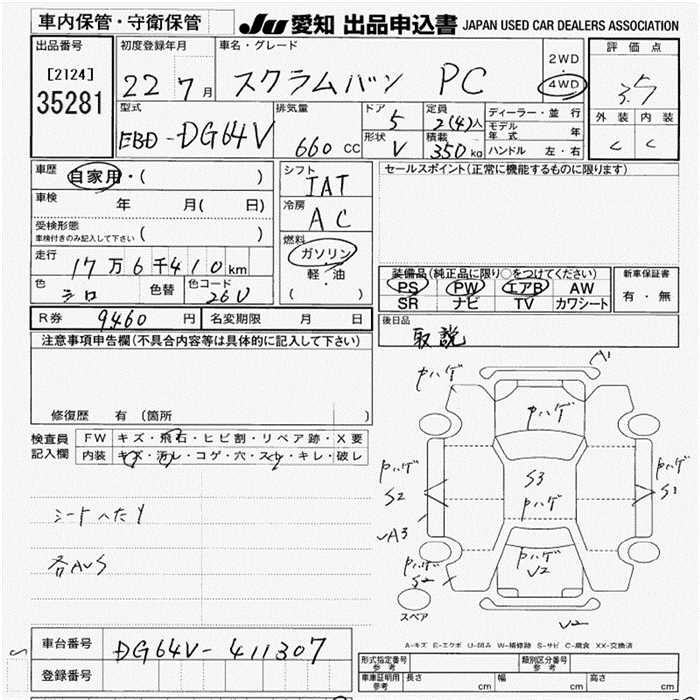 車内保管・守衛保管
JU 愛知 出品申込書 JAPAN USED CAR DEALERS ASSOCIATION
出品番号
[2124]
35281
初度登録年月
22 7月
車名・グレード
スクラムバン PC
2WD
・
4WD
評価点
3.5
外装 内装
C C
型式
EBD-DG64V
排気量
660 CC
ドア 5
形状 V
定員 2(4)人
積載 350kg
ディーラー・並行
モデル年式 年
ハンドル 左・右
車歴
自家用・( )
車検
年 月( 日)
受検形態
車検付きのみ記入して下さい ( )
走行
17万6千410km
色 シロ
色替
色コード 26U
シフト
IAT
冷房
AC
燃料
ガソリン
軽・油
( )
セールスポイント(正常に機能するものに限ります)
装備品(純正品に限り○をつけてください)
PS PW エアB AW
SR ナビ TV カワシート
新車保証書
有・無
R券 9460円
名変期限 月 日
後日品
取説
注意事項申告欄(不具合内容等は具体的に記入して下さい)
修復歴 有(箇所 )
検査員記入欄
FW キズ・飛石・ヒビ割・リペア跡・X要
内装 キズ・汚レ・コゲ・穴・スレ・キレ・破レ
シートへたり
各AUS
A1
Pハゲ
Pハゲ
Pハゲ
S2
S3
Pハゲ
Pハゲ
S1
A3
Pハゲ
S2
Pハゲ
U2
スペア
U2
A-キズ E-エクボ U-凹み W-補修跡 S-サビ C-腐食 XX-交換済
車台番号 DG64V-411307
登録番号
形式指定番号 参考
類別区分番号 参考
車庫証明用 参考 長さ cm 幅 cm 高さ cm